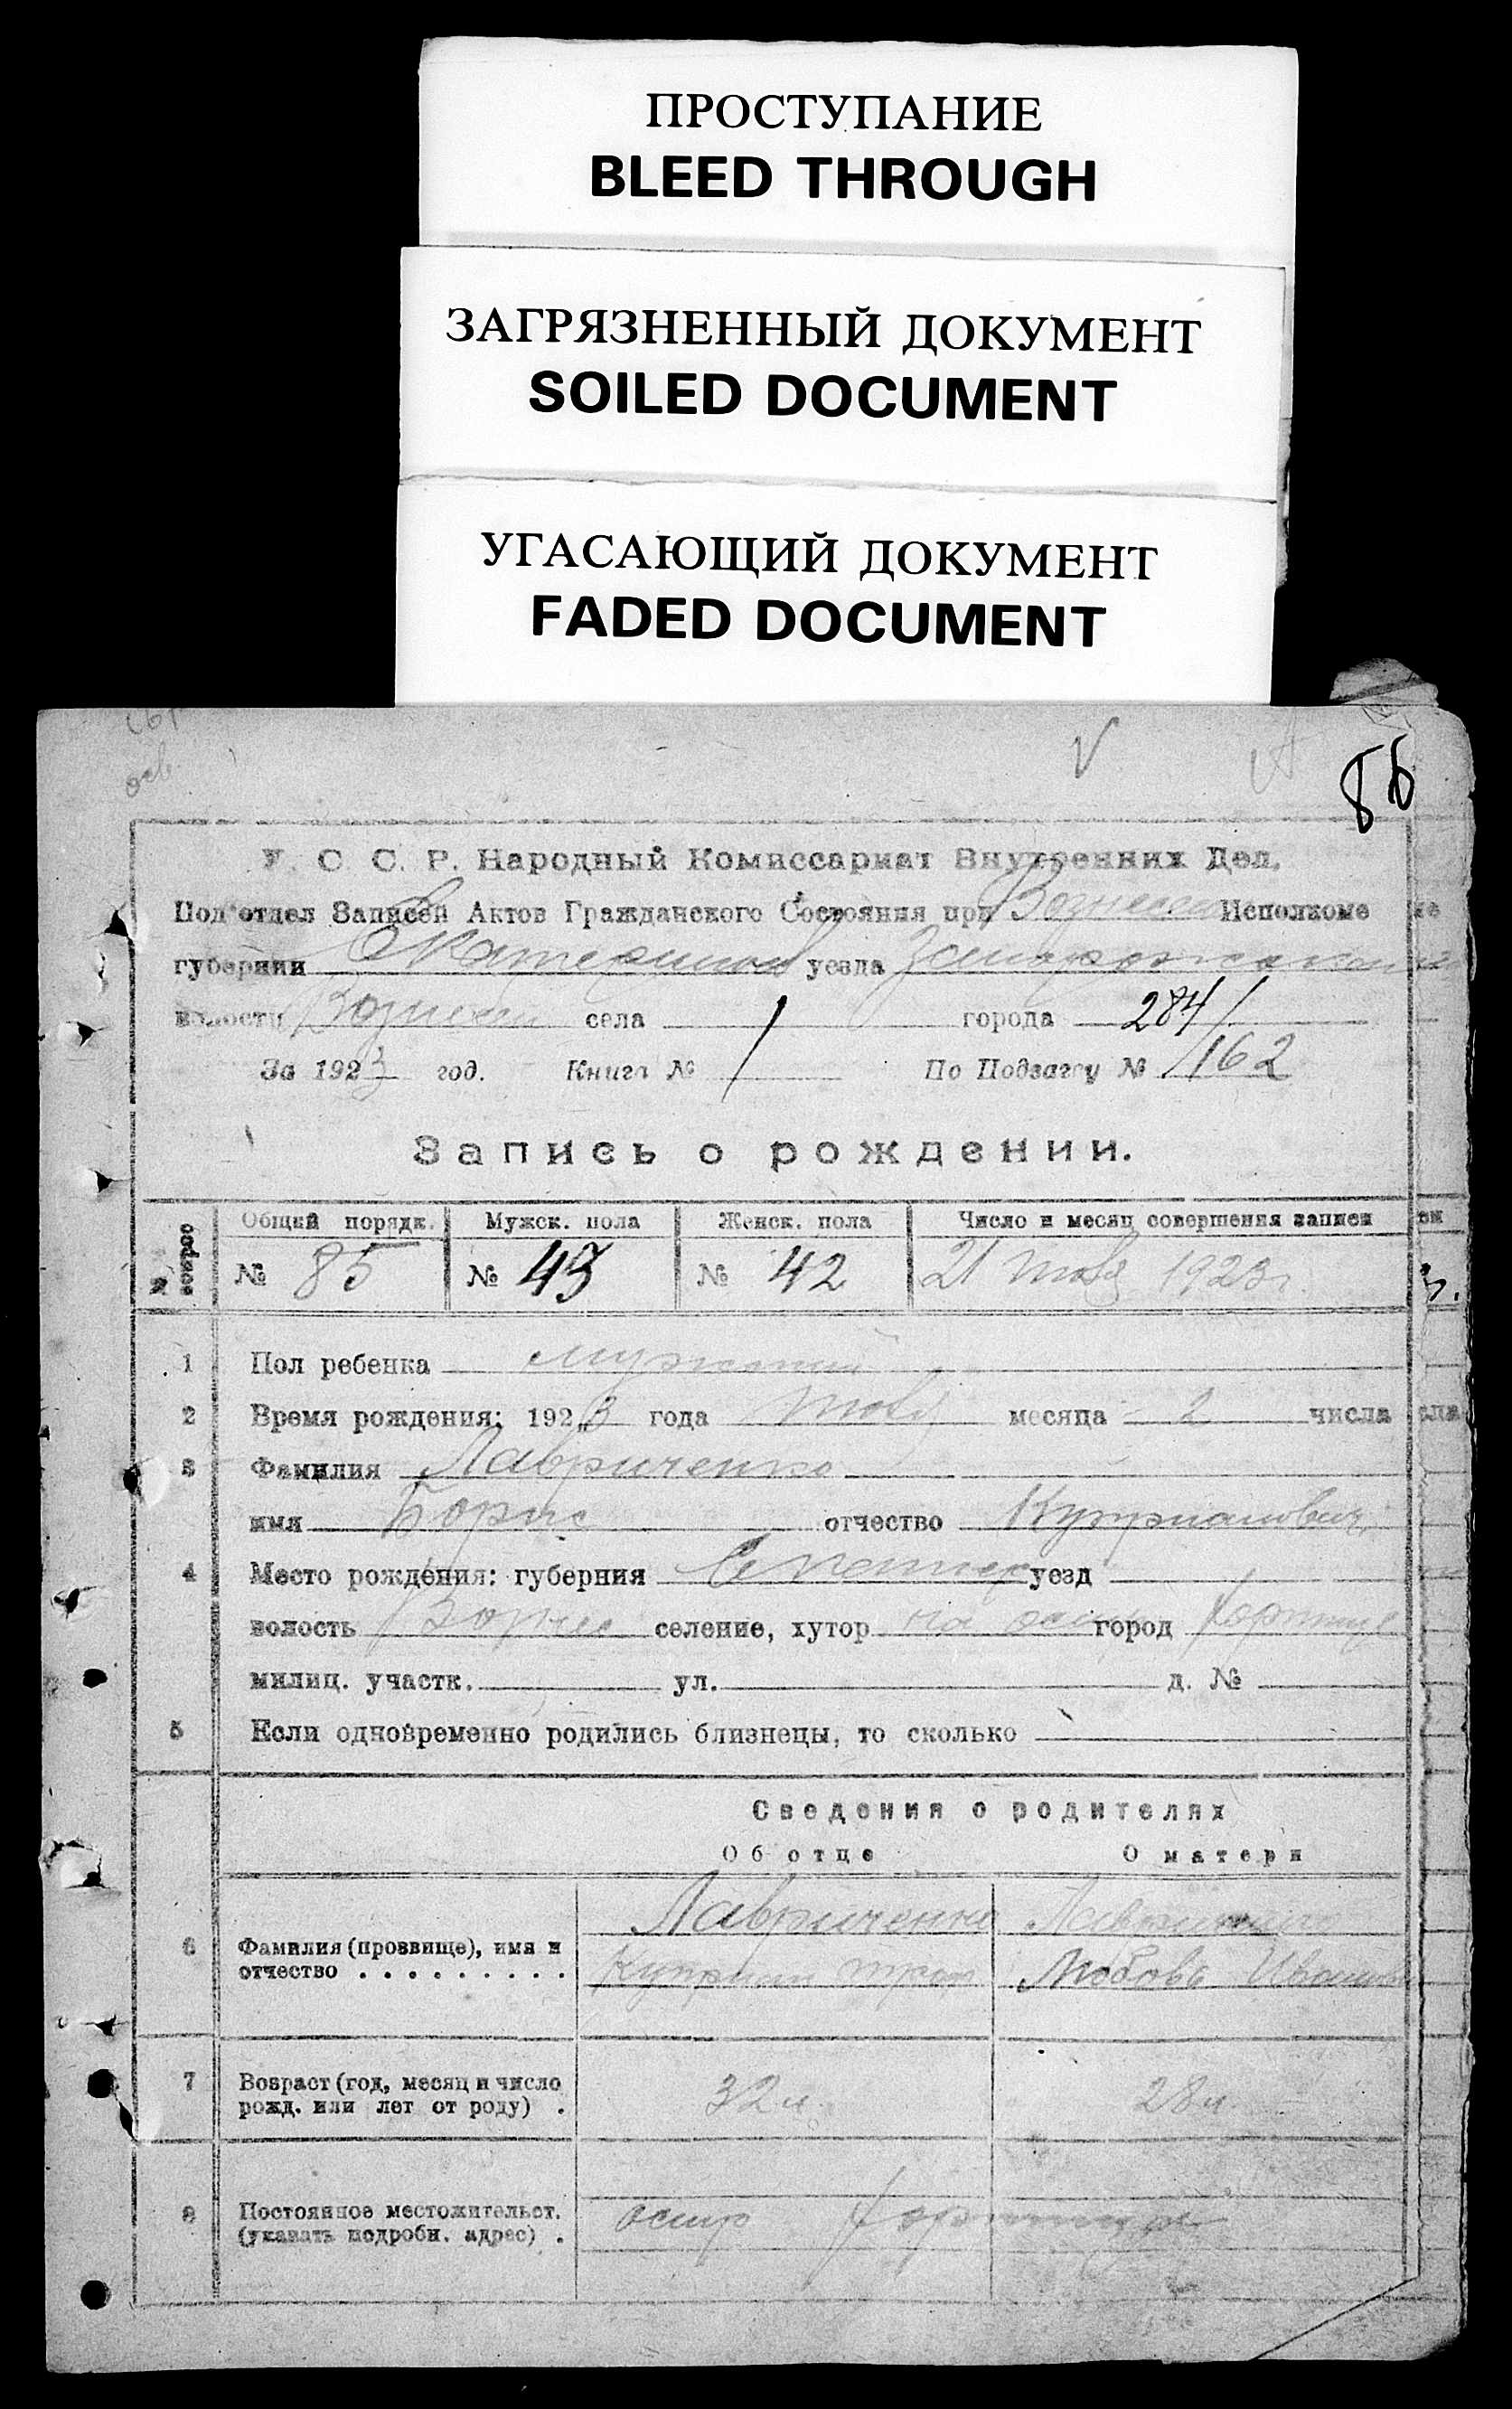 ПРОСТУПАНИЕ
BLEED THROUGH
ЗАГРЯЗНЕННЫЙ ДОКУМЕНТ
SOILED DOCUMENT
УГАСАЮЩИЙ ДОКУМЕНТ
FADED DOCUMENT
У. С. С. Р. Народный Комиссариат Внутренних Дел.
Под'отдел Записей Актов Гражданского Состояния при Вознесен Исполкоме
губернии Екатеринос уезда Запорожский
волости Вознесен села города 284
За 1923 год. Книга № 1 По Подзагсу № 162
Запись о рождении.
Общий порядк. Мужск. пола Женск. пола Число и месяц совершения записи
№ 85 № 43 № 42 21 1923 г.
1 Пол ребенка мужской
2 Время рождения: 1923 года месяца 2 числа
3 Фамилия Лавриченко
имя Борис отчество Куприанович
4 Место рождения: губерния Екатер уезд
волость Вознес селение, хутор на ост город Хортице
милиц. участк. ул. д. №
5 Если одновременно родились близнецы, то сколько
Сведения о родителях
Об отце О матери
Лавриченко Лавриченко
6 Фамилия (прозвище), имя и отчество . . . . . . . . . Куприан Любовь Иванов
7 Возраст (год, месяц и число рожд. или лет от роду) . 32 л. 28 л.
8 Постоянное местожительст. (указать подробн. адрес) . остр Хортица